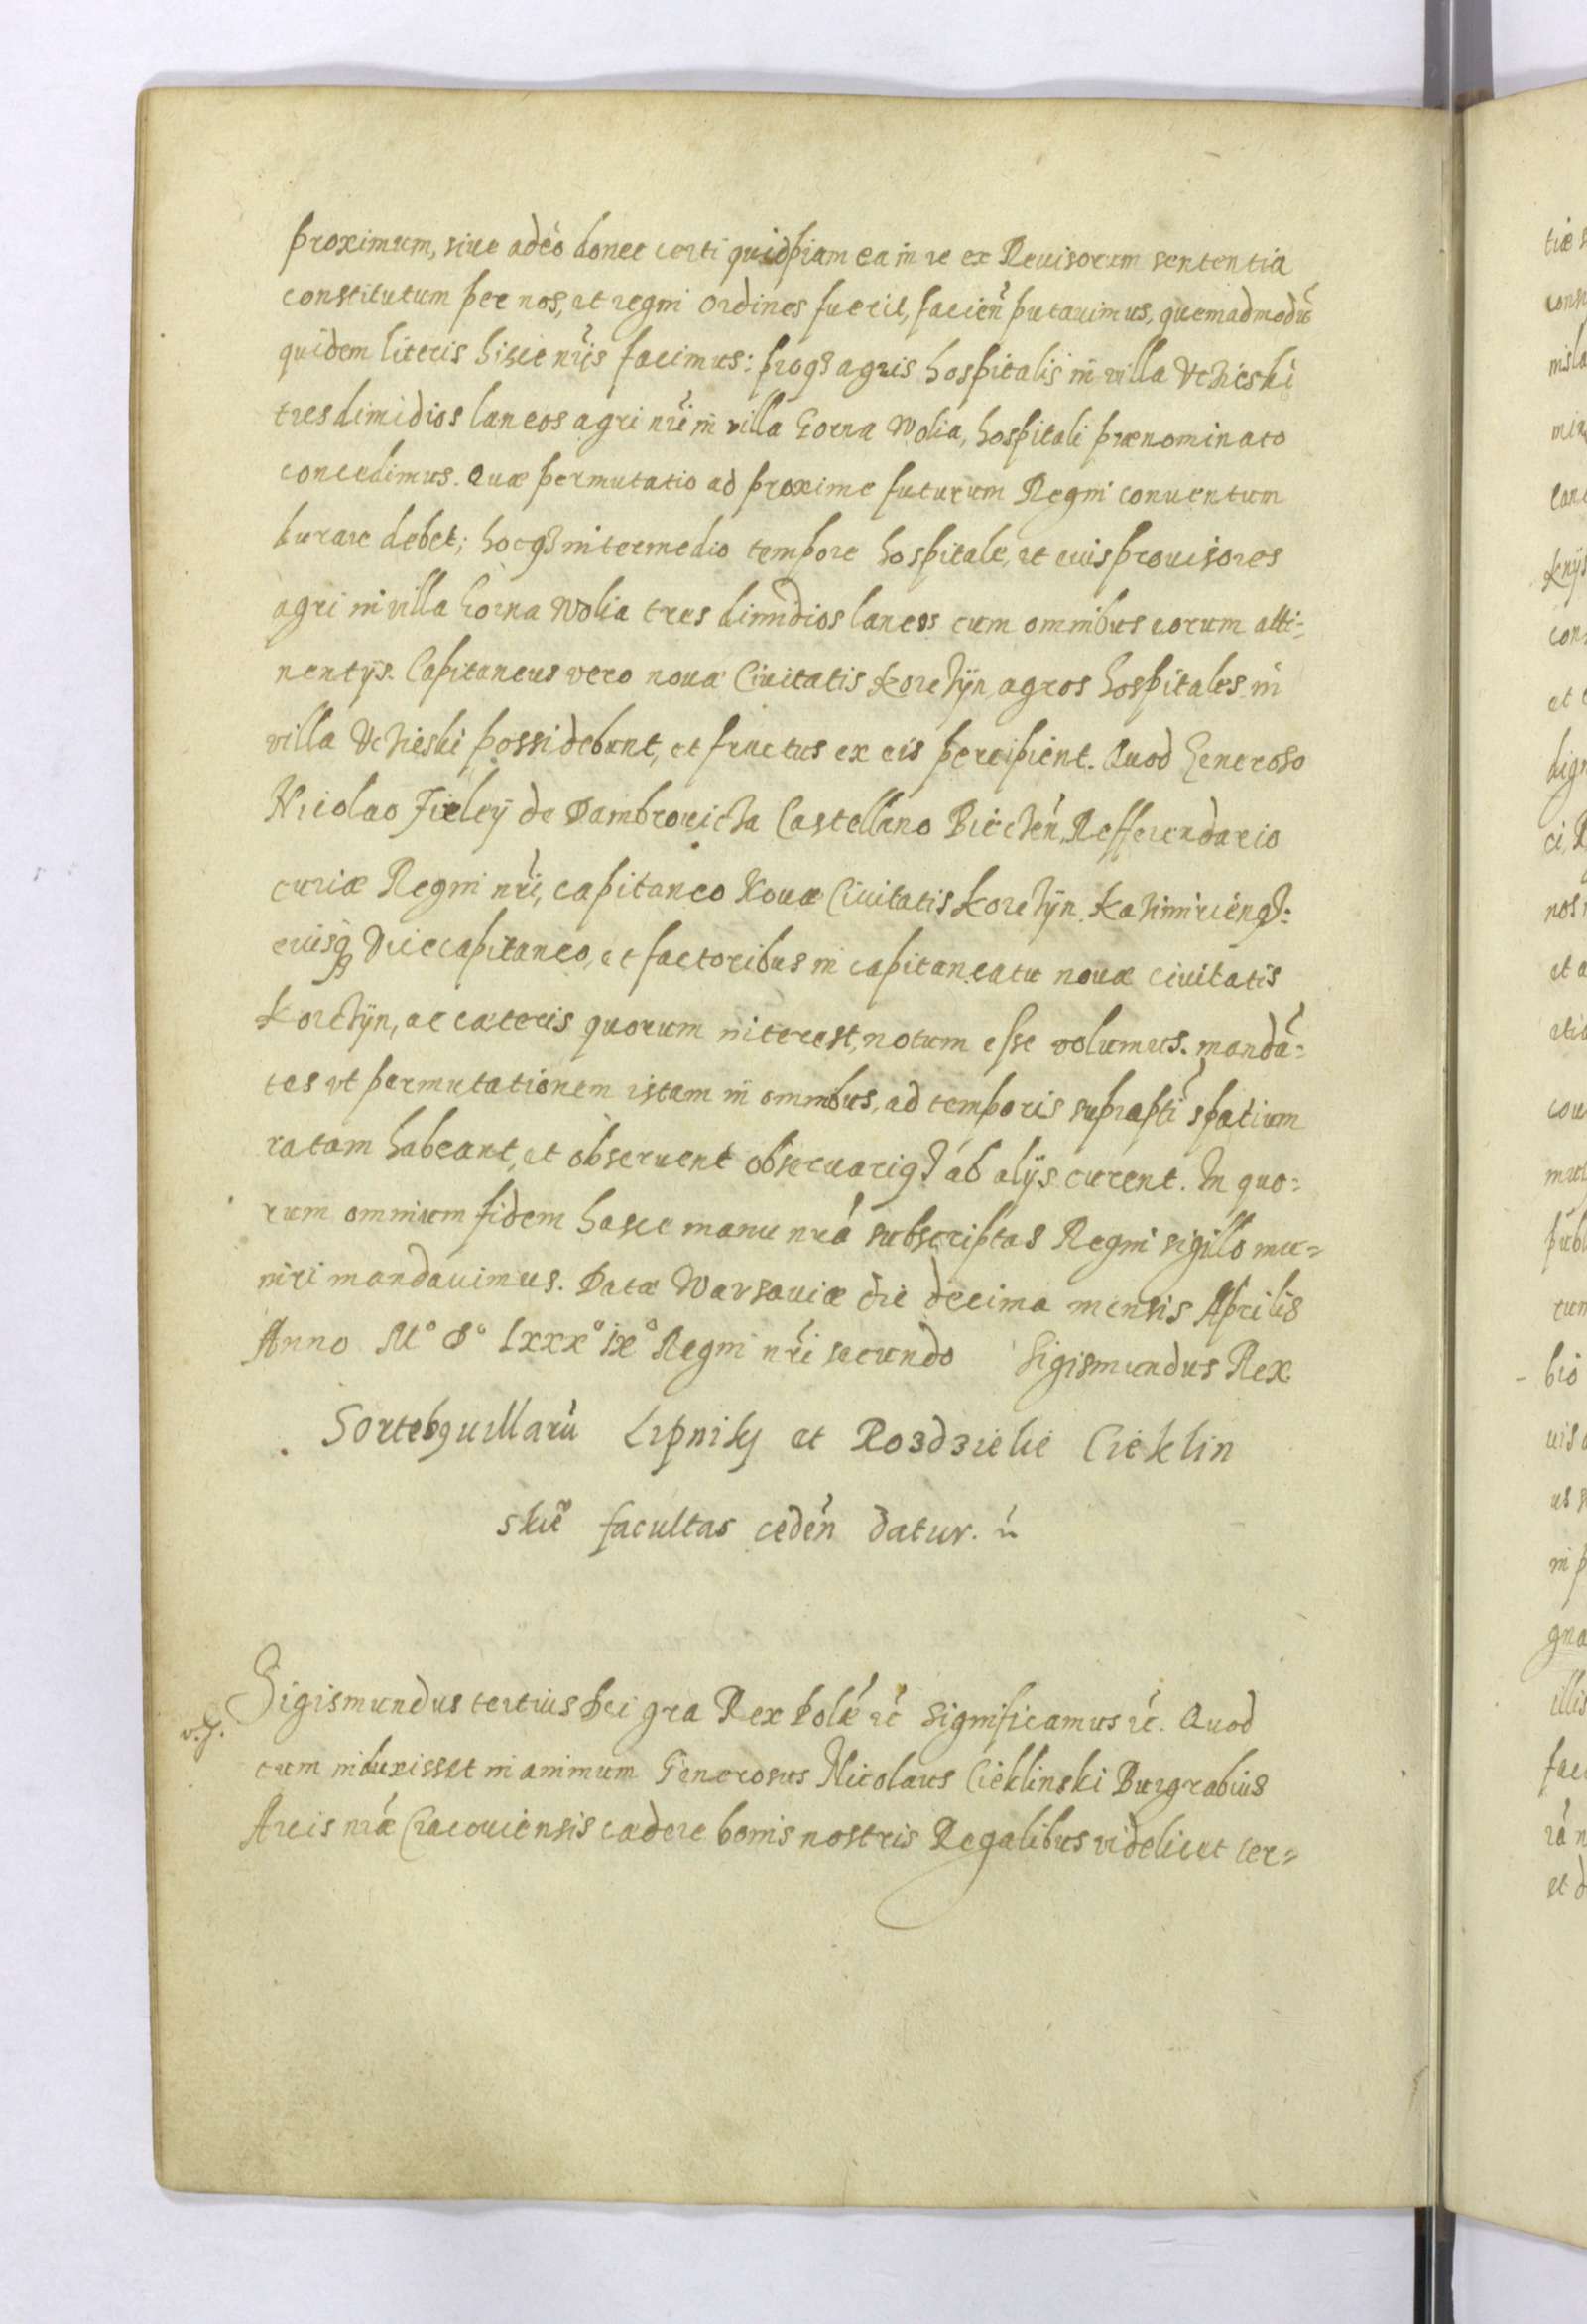 proximum, siue adeò donec certi quidpiam ea in re ex Reuisorum sententia
constitutum per nos, et regni ordines fuerit, facień putauimus, quemadmodū
quidem literis hisce nrĩs facimus: proq3 agris hospitalis in villa Vchieski
tres dimidios laneos agri nrĩ in villa Gorna Wolia, hospitali prænominato
concedimus. Quæ permutatio ad proxime futurum Regni conuentum
durare debet; hocq3 intermedio tempore hospitale, et euis prouisores
agri in villa Gorna Wolia tres dimidios laneos cum omnibus eorum atti-
nentijs. Capitaneus vero nouæ Ciuitatis Korchÿn agros hospitales in
villa Vchieski possidebunt, et fructus ex eis percipient. Quod Generoso
Nicolao Firleÿ de Dambrouicha Castellano Biecheń, Refferendario
curiæ Regni nrĩ, capitaneo Nouæ Ciuitatis Korchÿn Kazimirień q3:
eiusq3 Vicecapitaneo, et factoribus in capitaneatu nouæ ciuitatis
Korchÿn, ac cæteris quorum interest, notum esse volumus. mandã-
tes vt permutationem istam in omnibus, ad temporis suprapti spatium
ratam habeant, et obseruent obseruariq3 ab alijs curent. In quo-
rum omnium fidem hasce manu nrã subscriptas Regni sigillo mu-
niri mandauimus. Datæ Warsauiæ die decima mensis Aprilis
Anno M° D° Lxxx° ix° Regni nrĩ secundo Sigismundus Rex.
Sorteb9 uillarũ Lipniky et Rozdziele Cieklin
skie° facultas cedeń datur.
Sigismundus tertius Dei gra Rex Polæ ec̃ Significamus ec̃. Quod
cum induxisset in animum Generosus Nicolaus Cieklinski Burgrabius
Arcis nræ Cracouiensis cædere bonis nostris Regalibus videlicet cer-